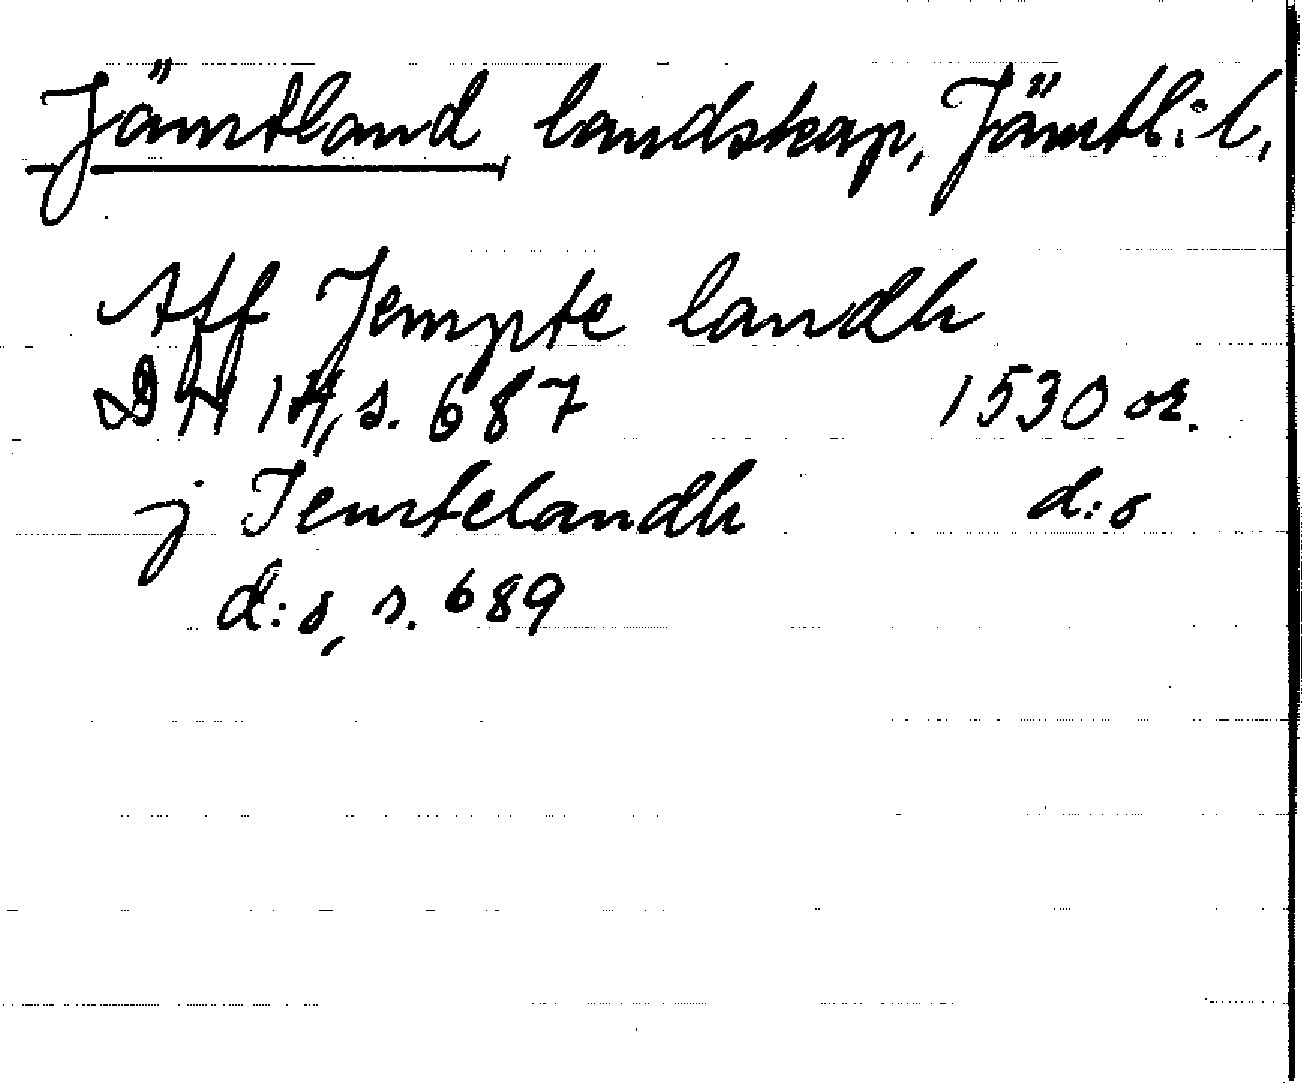 Jämtland, landskap, Jämtl:l,
Aff Jempte landh
DN 14, s. 687 1530 or.
j Jemtelandh d:o
d:o, s. 689